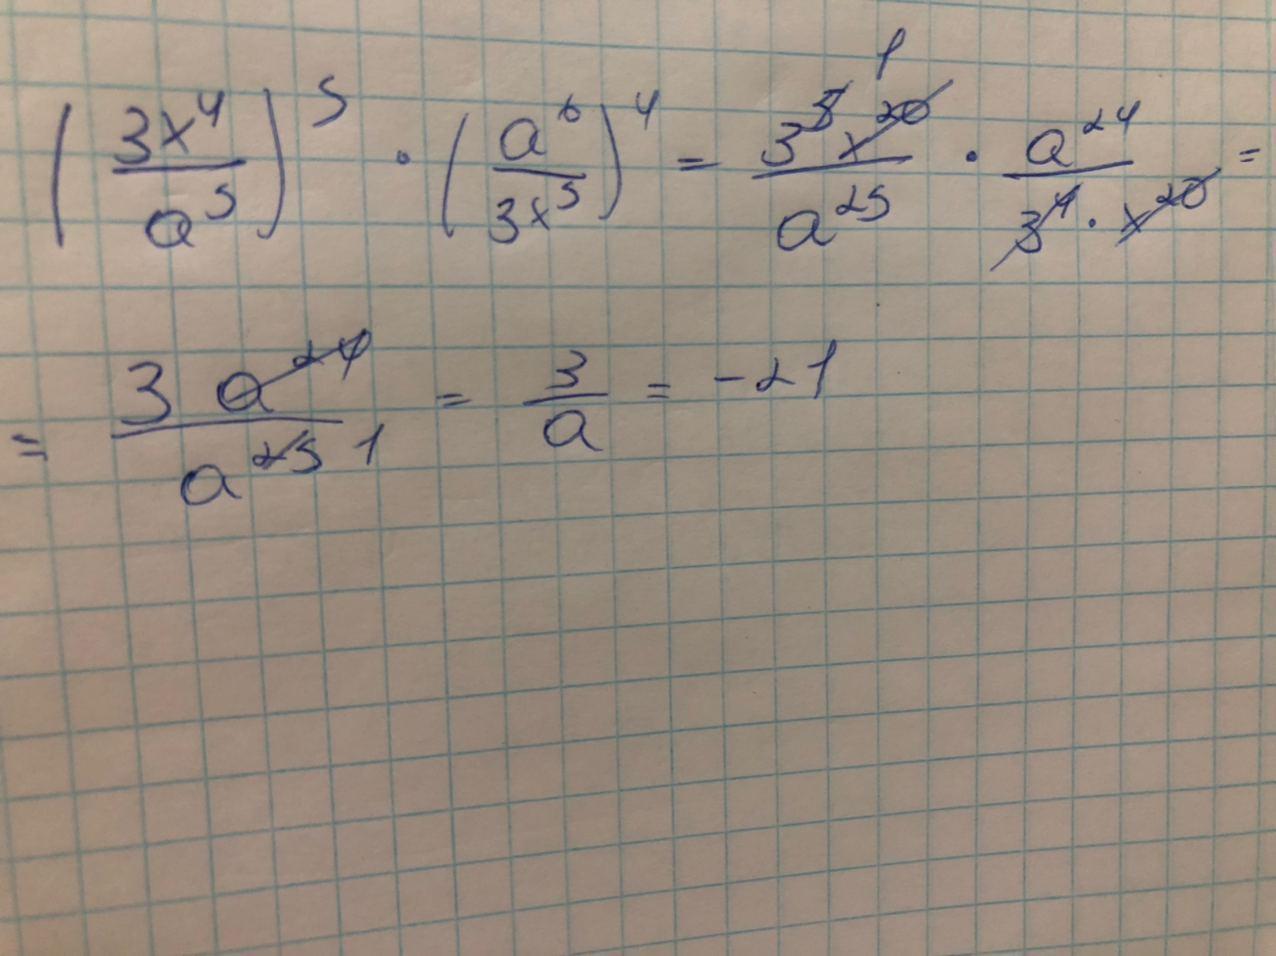 (3x⁴/a⁵)⁵ · (a⁶/3x⁵)⁴ = 3⁵x²⁰/a²⁵ · a²⁴/3⁴·x²⁰ =
= 3 a²⁴/a²⁵ 1 = 3/a = -21